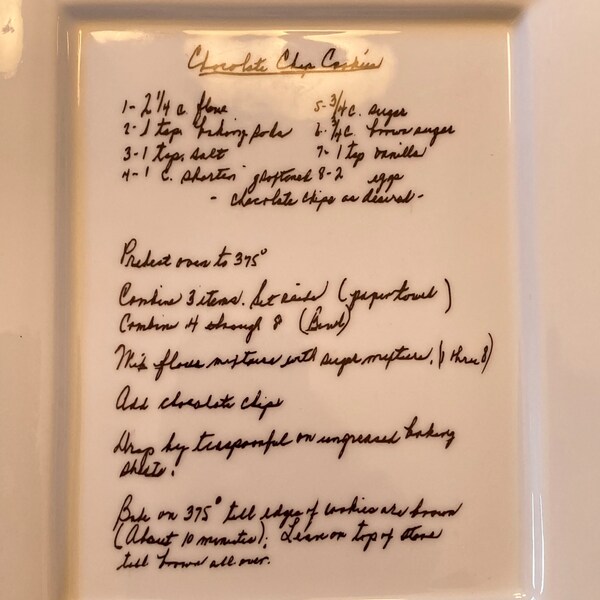 Chocolate Chip Cookies
1- 2 1/4 c. flour 5- 3/4 c. sugar
2- 1 tsp. baking soda 6- 3/4 c. brown sugar
3- 1 tsp. salt 7- 1 tsp vanilla
4- 1 c. softened 8-2 eggs
- chocolate chips as desired -
Preheat oven to 375°
Combine 3 items. Set aside (paper towel)
Combine 4 through 8 (Bowl)
Mix flour mixture with sugar mixture. (1 thru 8)
Add chocolate chips
Drop by teaspoonful on ungreased baking
sheets.
Bake on 375° till edges of cookies are brown
(About 10 minutes); Leave on top of stove
till brown all over.